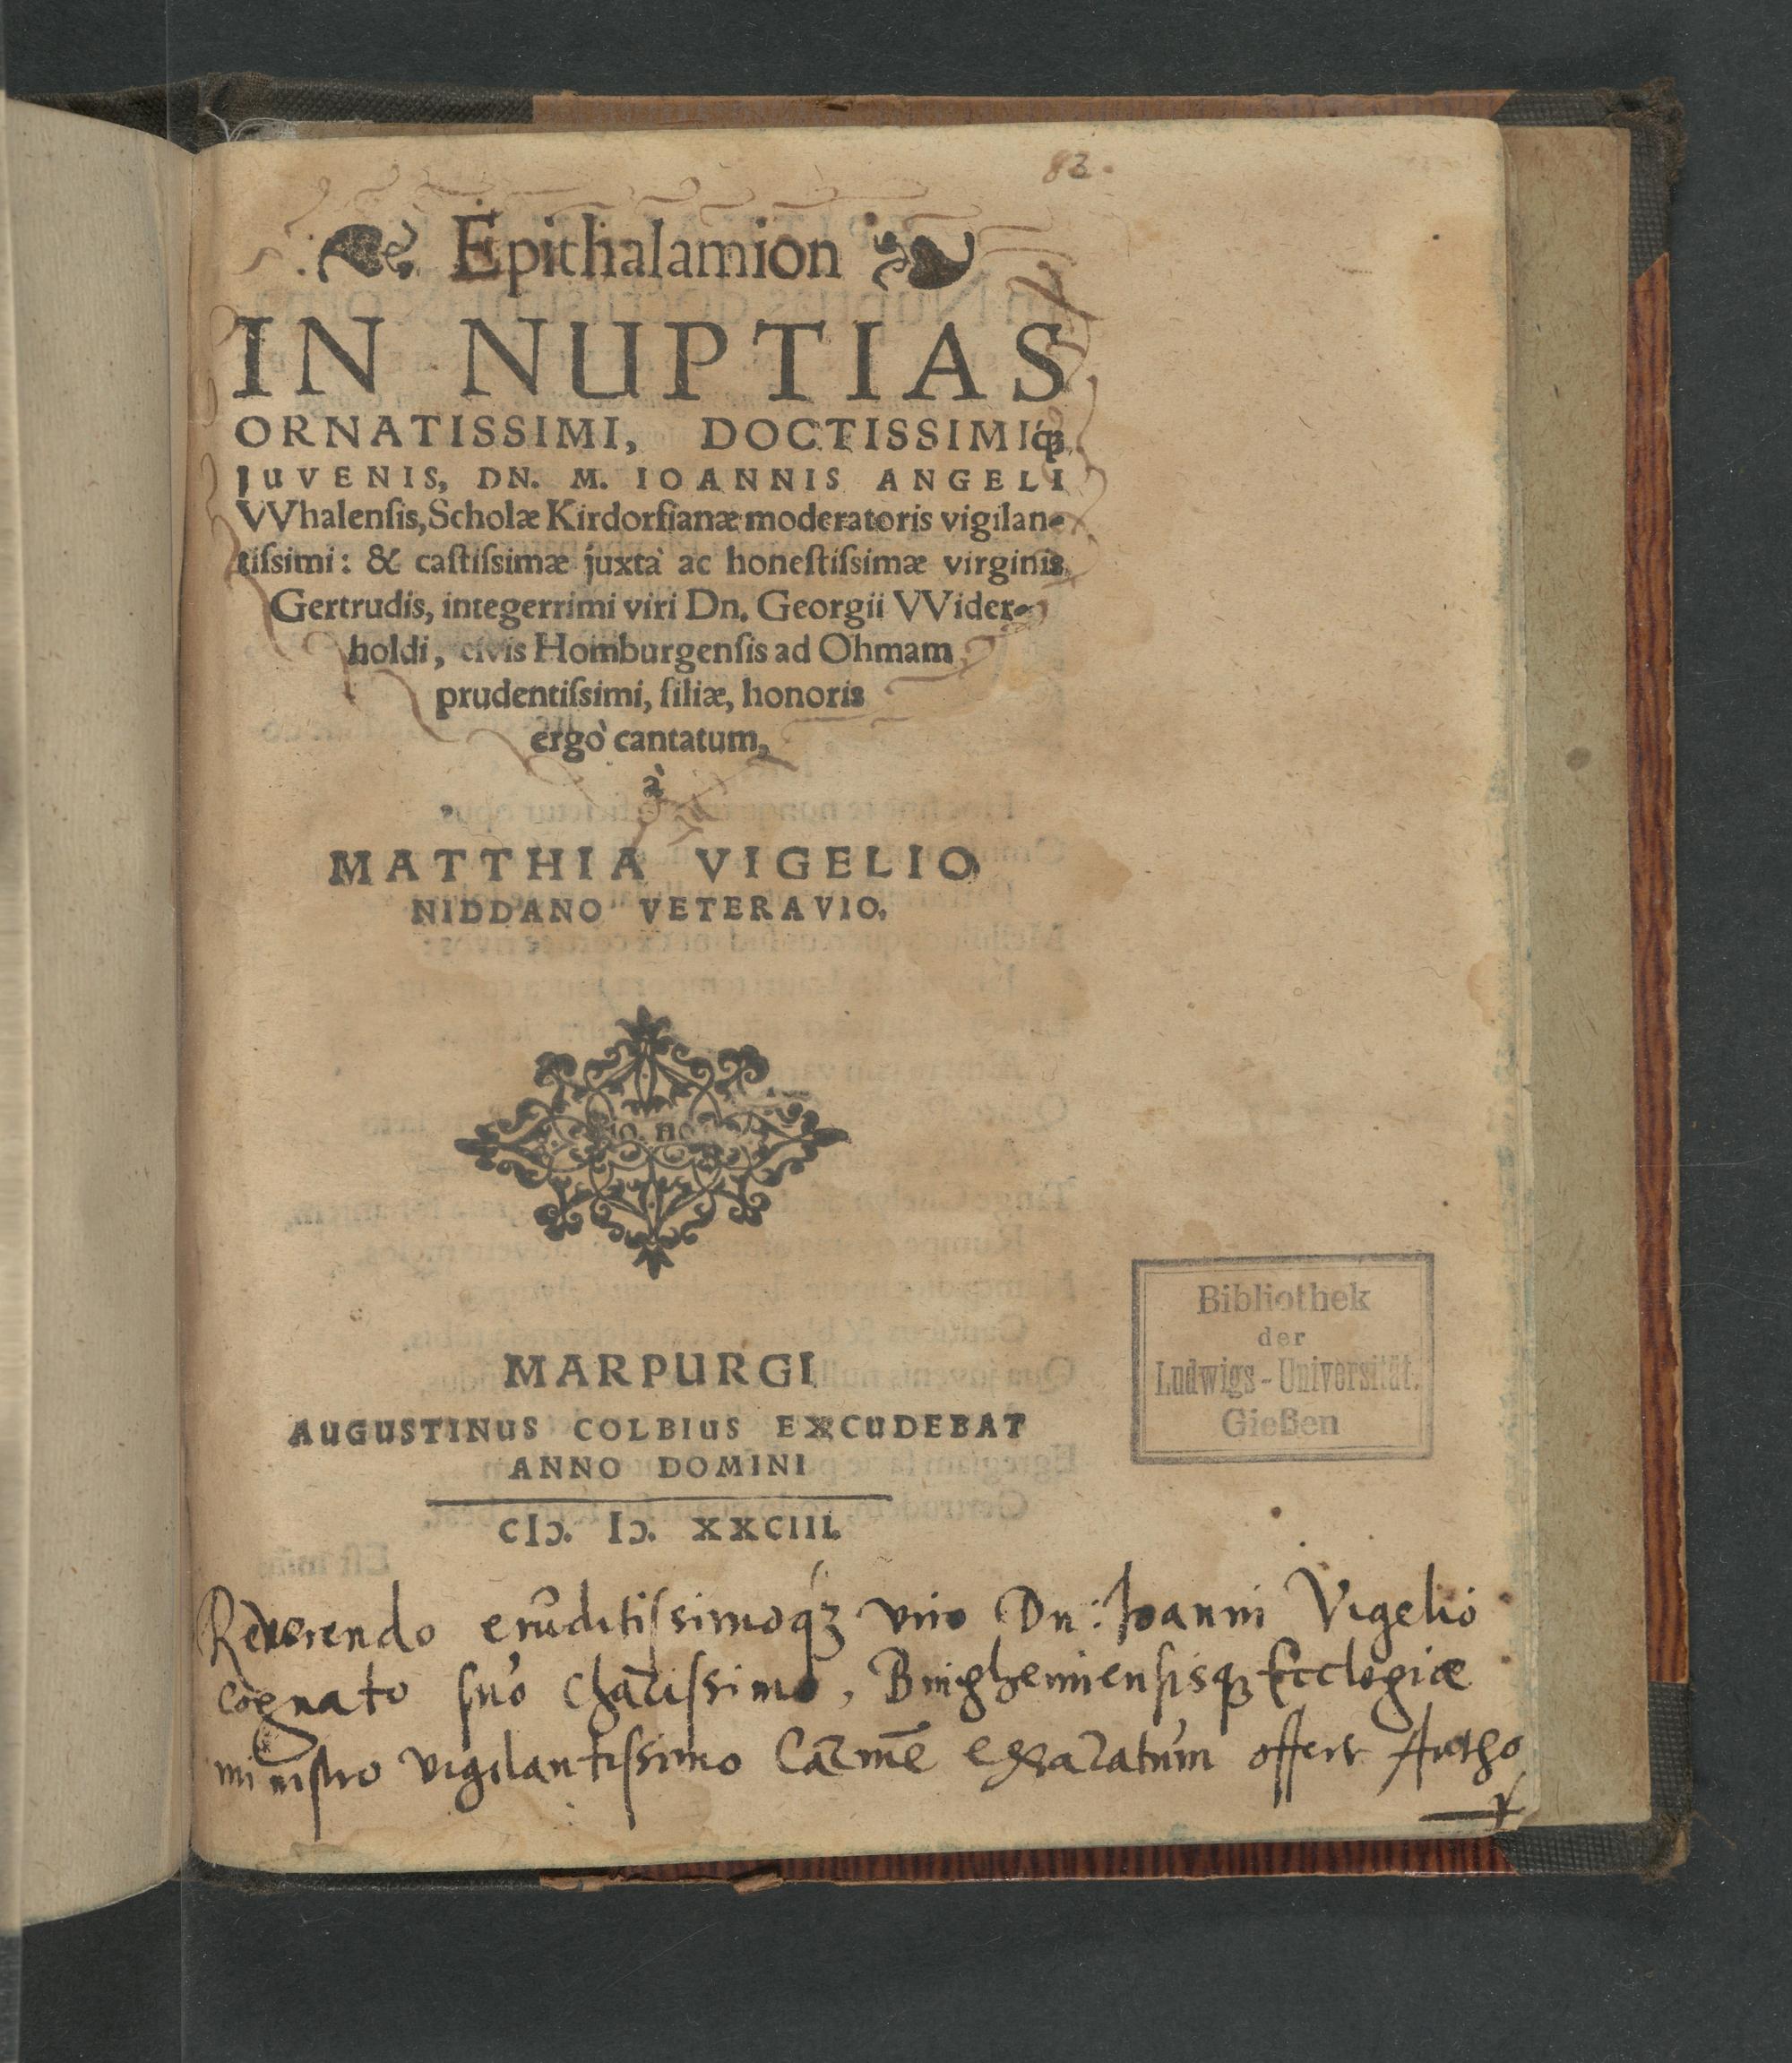 83.
Epithalamion
IN NUPTIAS
ORNATISSIMI, DOCTISSIMIq́ꝫ
JUVENIS, DN. M. IOANNIS ANGELI
VVhalenſis, Scholæ Kirdorfianæ moderatoris vigilan-
tiſsimi: & caſtiſsimæ juxtà ac honeſtiſsimæ virginis
Gertrudis, integerrimi viri Dn. Georgii VVider-
holdi, civis Homburgenſis ad Ohmam
prudentiſsimi, filiæ, honoris
ergò cantatum,
à
MATTHIA VIGELIO
NIDDANO VETERAVIO.
MARPURGI
AUGUSTINUS COLBIUS EXCUDEBAT
ANNO DOMINI
CIↃ. IↃ. XXCIII.
Bibliothek
der
Ludwigs-Universität.
Gießen
Reverendo eruditiſsimoq́ꝫ viro Dn: Joanni Vigelio
cognato suo chariſsimo, Binghemiensisqꝫ Ecclesiæ
ministro vigilantiſsimo Carmē exaratum offert Autho
r